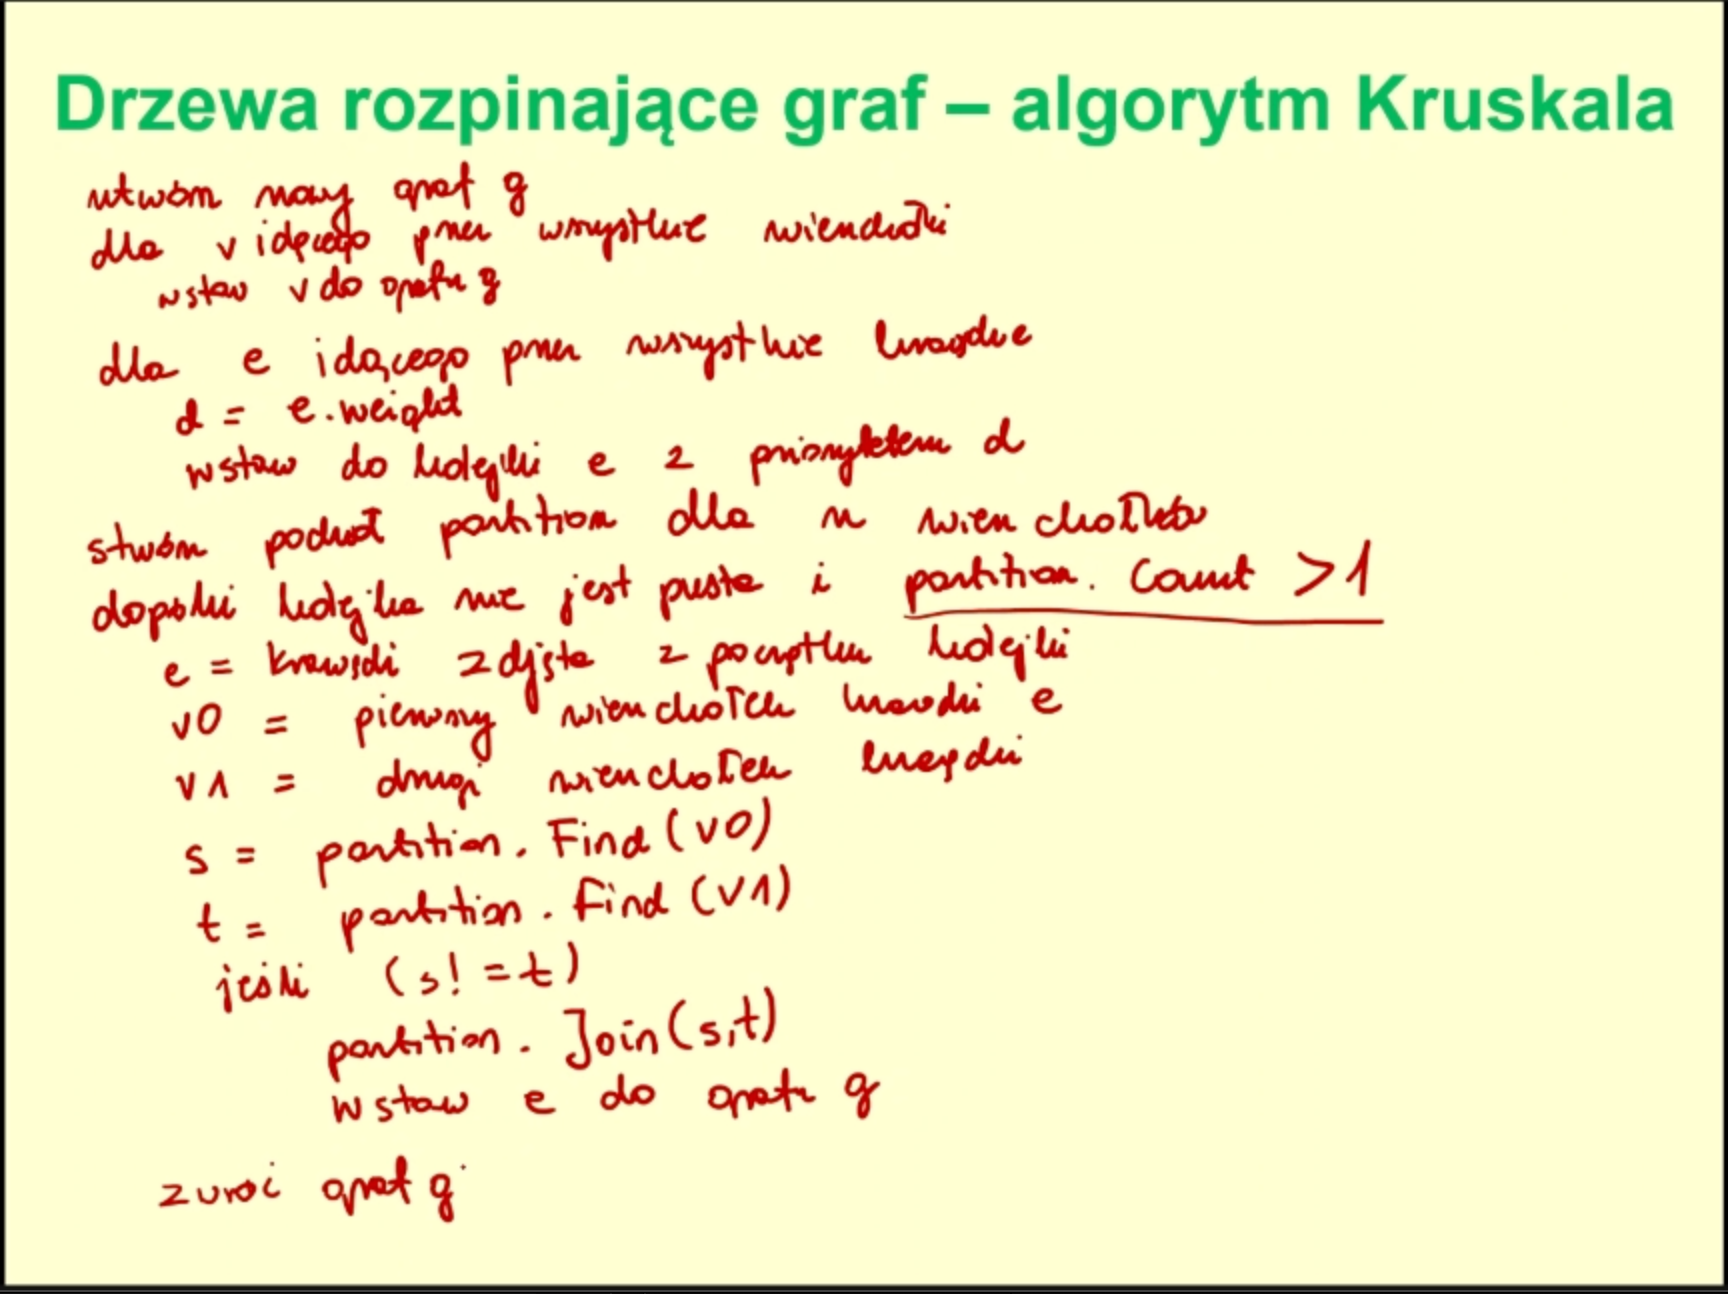 Drzewa rozpinające graf – algorytm Kruskala
utwórz nowy graf g
dla v idącego przez wszystkie wierzchołki
wstaw v do grafu g
dla e idącego przez wszystkie krawędzie
d = e.weight
wstaw do kolejki e z priorytetem d
stwórz podział partition dla n wierzchołków
dopóki kolejka nie jest pusta i partition. Count >1
e = krawędź zdjęta z początku kolejki
v0 = pierwszy wierzchołek krawędzi e
v1 = drugi wierzchołek krawędzi
s = partition. Find (v0)
t = partition. Find (v1)
jeśli (s! =t)
partition. Join(s,t)
wstaw e do grafu g
zwróć graf g